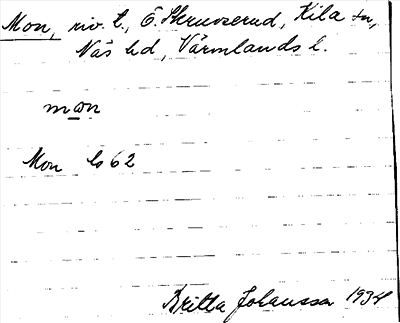 Mon, riv. t., Ö. Skruvserud, Kila sn,
Näs hd, Värmlands l.
mon
Mon Ls 62
Britta Johansson 1934